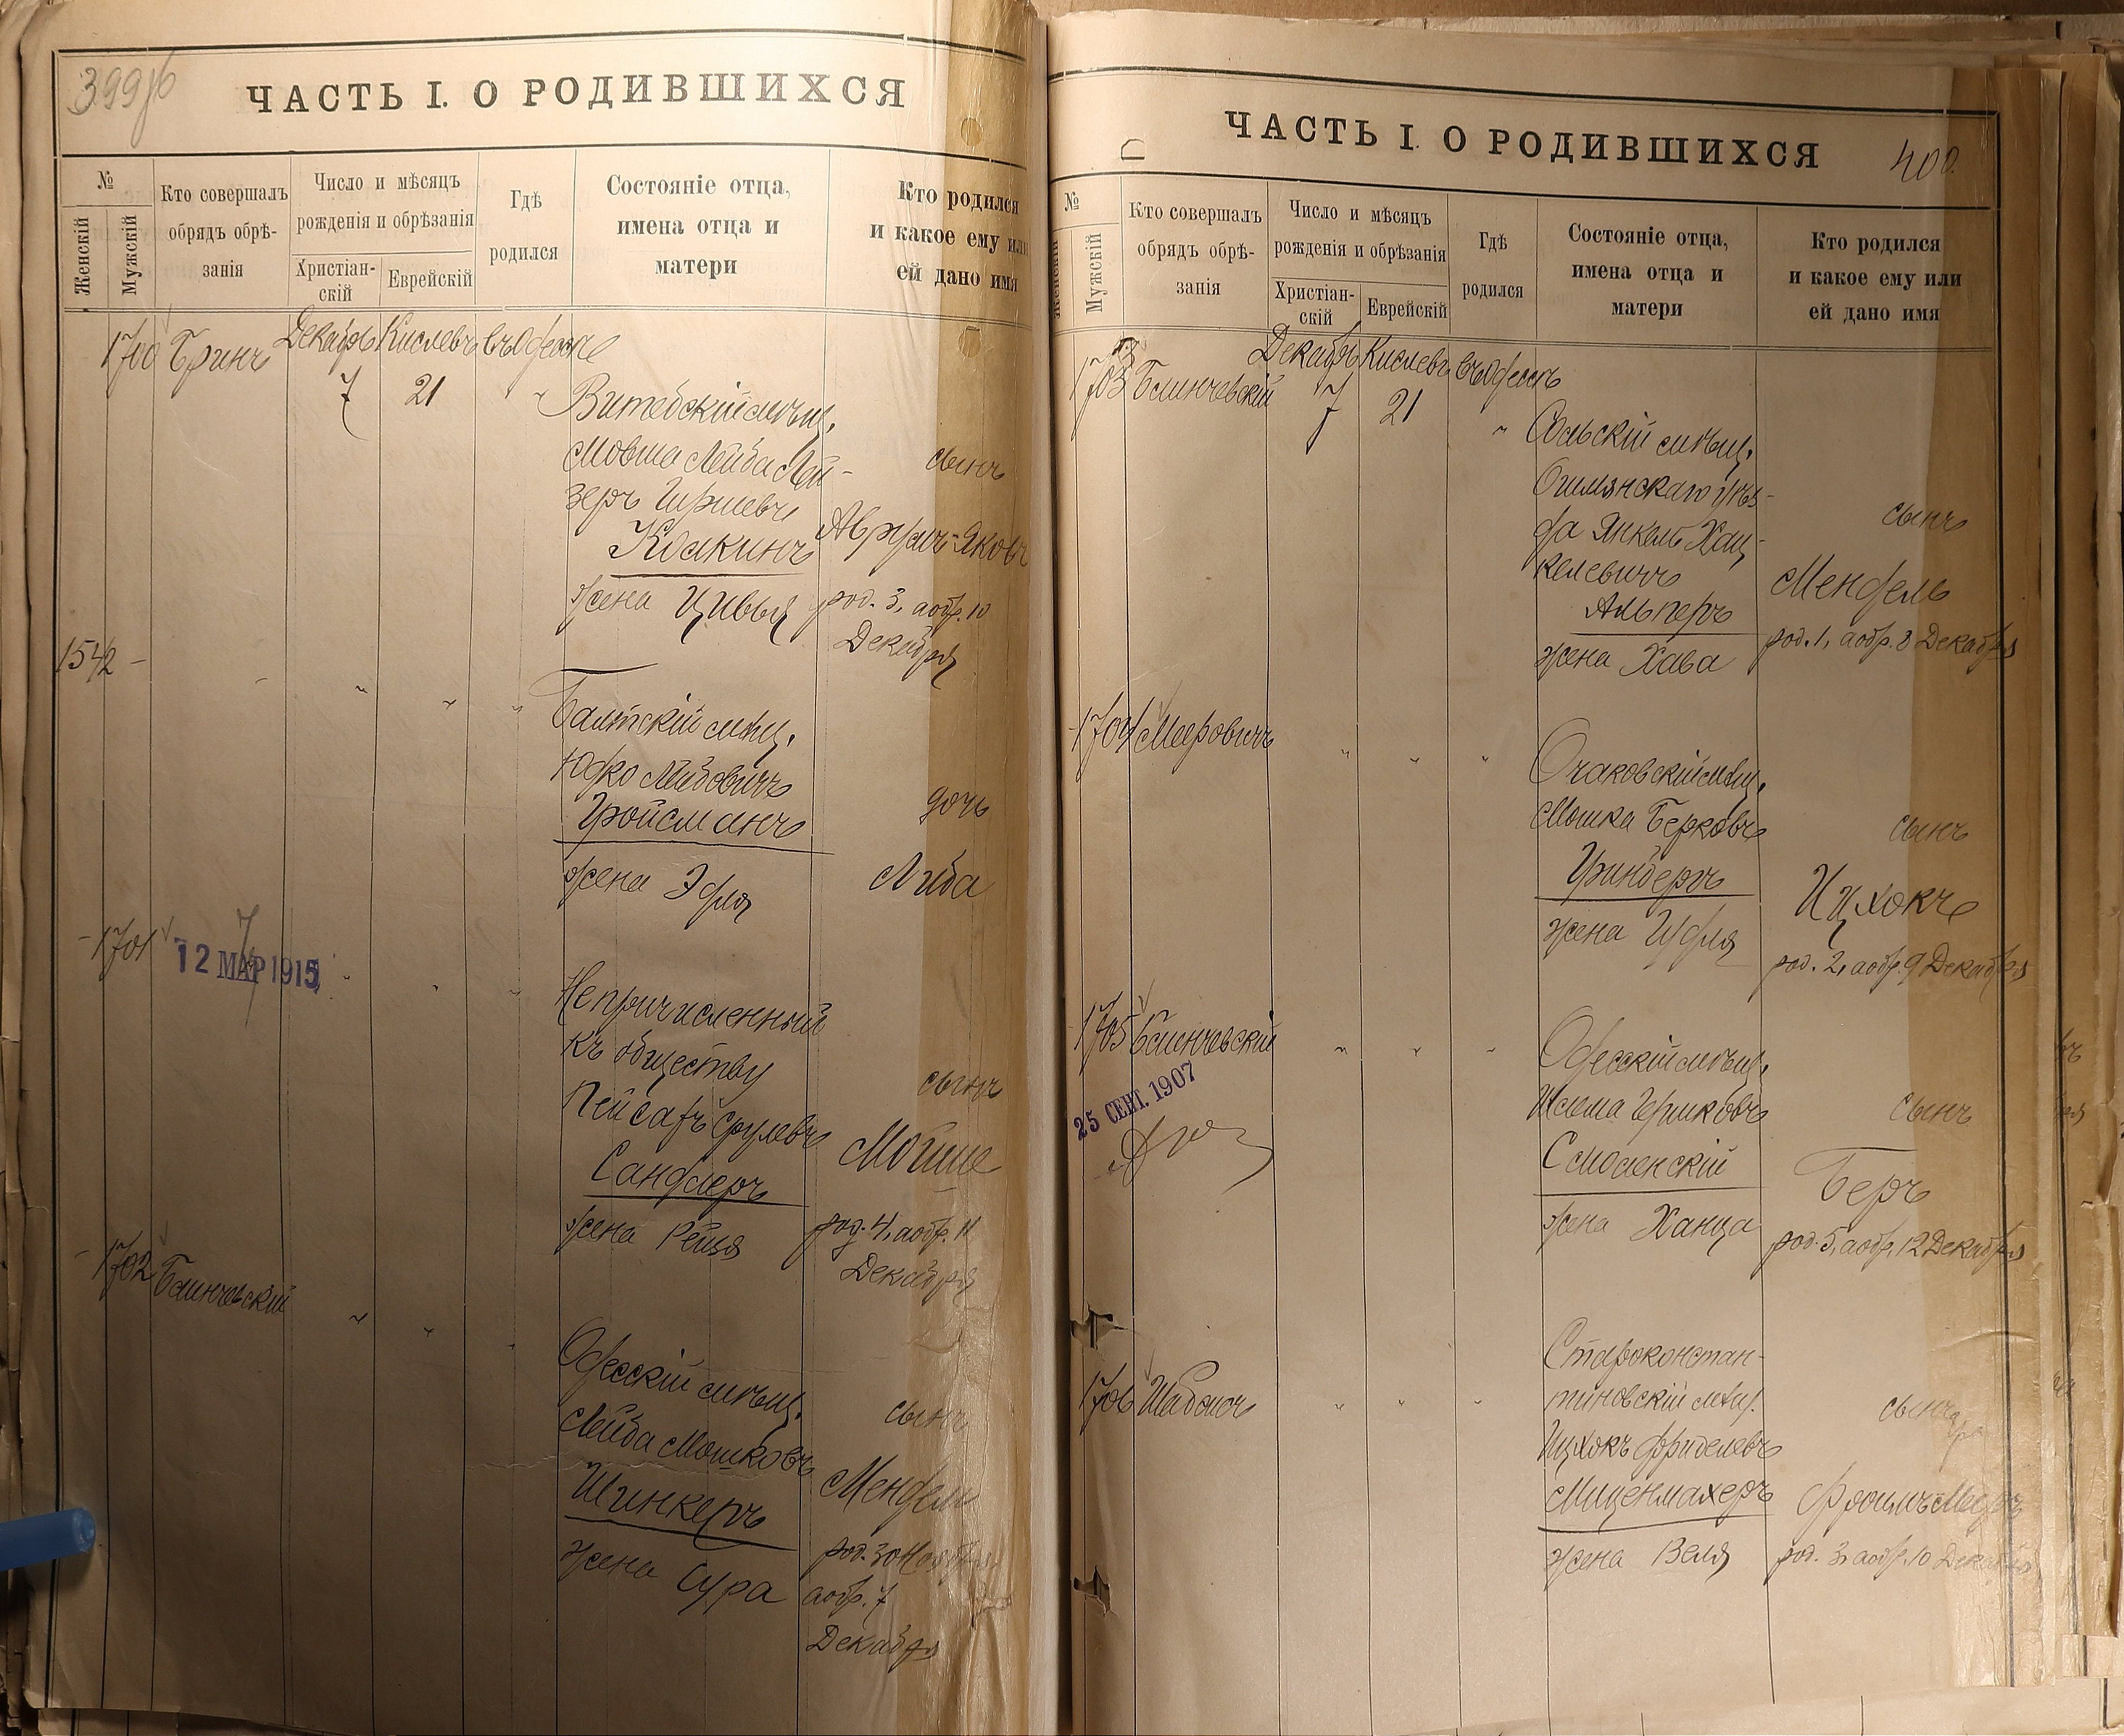 399об
ЧАСТЬ I. О РОДИВШИХСЯ
№
Женскій
Мужскій
Кто совершалъ
обрядъ обрѣ-
занія
Число и мѣсяцъ
рожденія и обрѣзанія
Христіан-
скій
Еврейскій
Гдѣ
родился
Состояніе отца,
имена отца и
матери
Кто родился
и какое ему или
ей дано имя
1700 Бринъ Декабрь Кислевъ въ Одессѣ
7 21 "
Витебскій мѣщ.
Мовша Лейба Лей-
зеръ Гиршевъ
Колкинъ
жена Цивья
сынъ
Аврумъ-Яковъ
род. 3, а обр. 10
Декабря
1542 - " " " "
Балтскій мѣщ.
Юдко Лейбовичъ
Гройсманъ
жена Эдля
дочь
Либа
1701
12 МАР 1915
Непричисленный
къ обществу
Пейсахъ Срулевъ
Сандлеръ
жена Рейзя
сынъ
Мойше
род. 4, а обр. 11
Декабря
1702 Блинчевскій " " "
Одесскій мѣщ.
Лейба Мошковъ
Шинкеръ
жена Сура
сынъ
Мендель
род. 30 Ноября,
а обр. 7
Декабря
ЧАСТЬ I. О РОДИВШИХСЯ
400.
№
Женскій
Мужскій
Кто совершалъ
обрядъ обрѣ-
занія
Число и мѣсяцъ
рожденія и обрѣзанія
Христіан-
скій
Еврейскій
Гдѣ
родился
Состояніе отца,
имена отца и
матери
Кто родился
и какое ему или
ей дано имя
1703 Блинчевскій Декабрь Кислевъ въ Одессѣ
7 21 "
Сольскій мѣщ.
Ошмянскаго уѣз-
да Янкель Хац-
келевичъ
Альперъ
жена Хава
сынъ
Мендель
род. 1, а обр. 8 Декабря
1704 Мееровичъ " " "
Очаковскій мѣщ.
Мошка Берковъ
Гринбергъ
жена Идля
сынъ
Ицхокъ
род. 2, а обр. 9 Декабря
1705 Блинчевскій " " "
25 СЕНТ. 1907
Одесскій мѣщ.
Шлема Гершковъ
Смоленскій
жена Ханца
сынъ
Беръ
род. 5, а обр. 12 Декабря
1706 Шабсисъ " " "
Староконстан-
тиновскій мѣщ.
Ицхокъ Фриделевъ
Миценмахеръ
жена Веля
сынъ
Фроимъ-Меиръ
род. 3, а обр. 10 Декабря